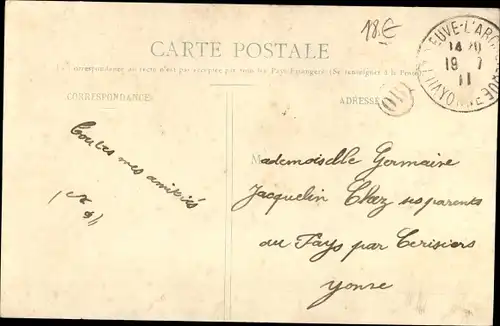 18 €
CARTE POSTALE
La Correspondance au recto n'est pas acceptée par tous les Pays Étrangers (Se renseigner à la Poste)
CORRESPONDANCE
ADRESSE
OR
EUVE-L'ARC
14
19 7
11
Toutes mes amitiés
Mademoiselle Germaine
Jacquelin Chez ses parents
au Pays par Cerisiers
Yonne